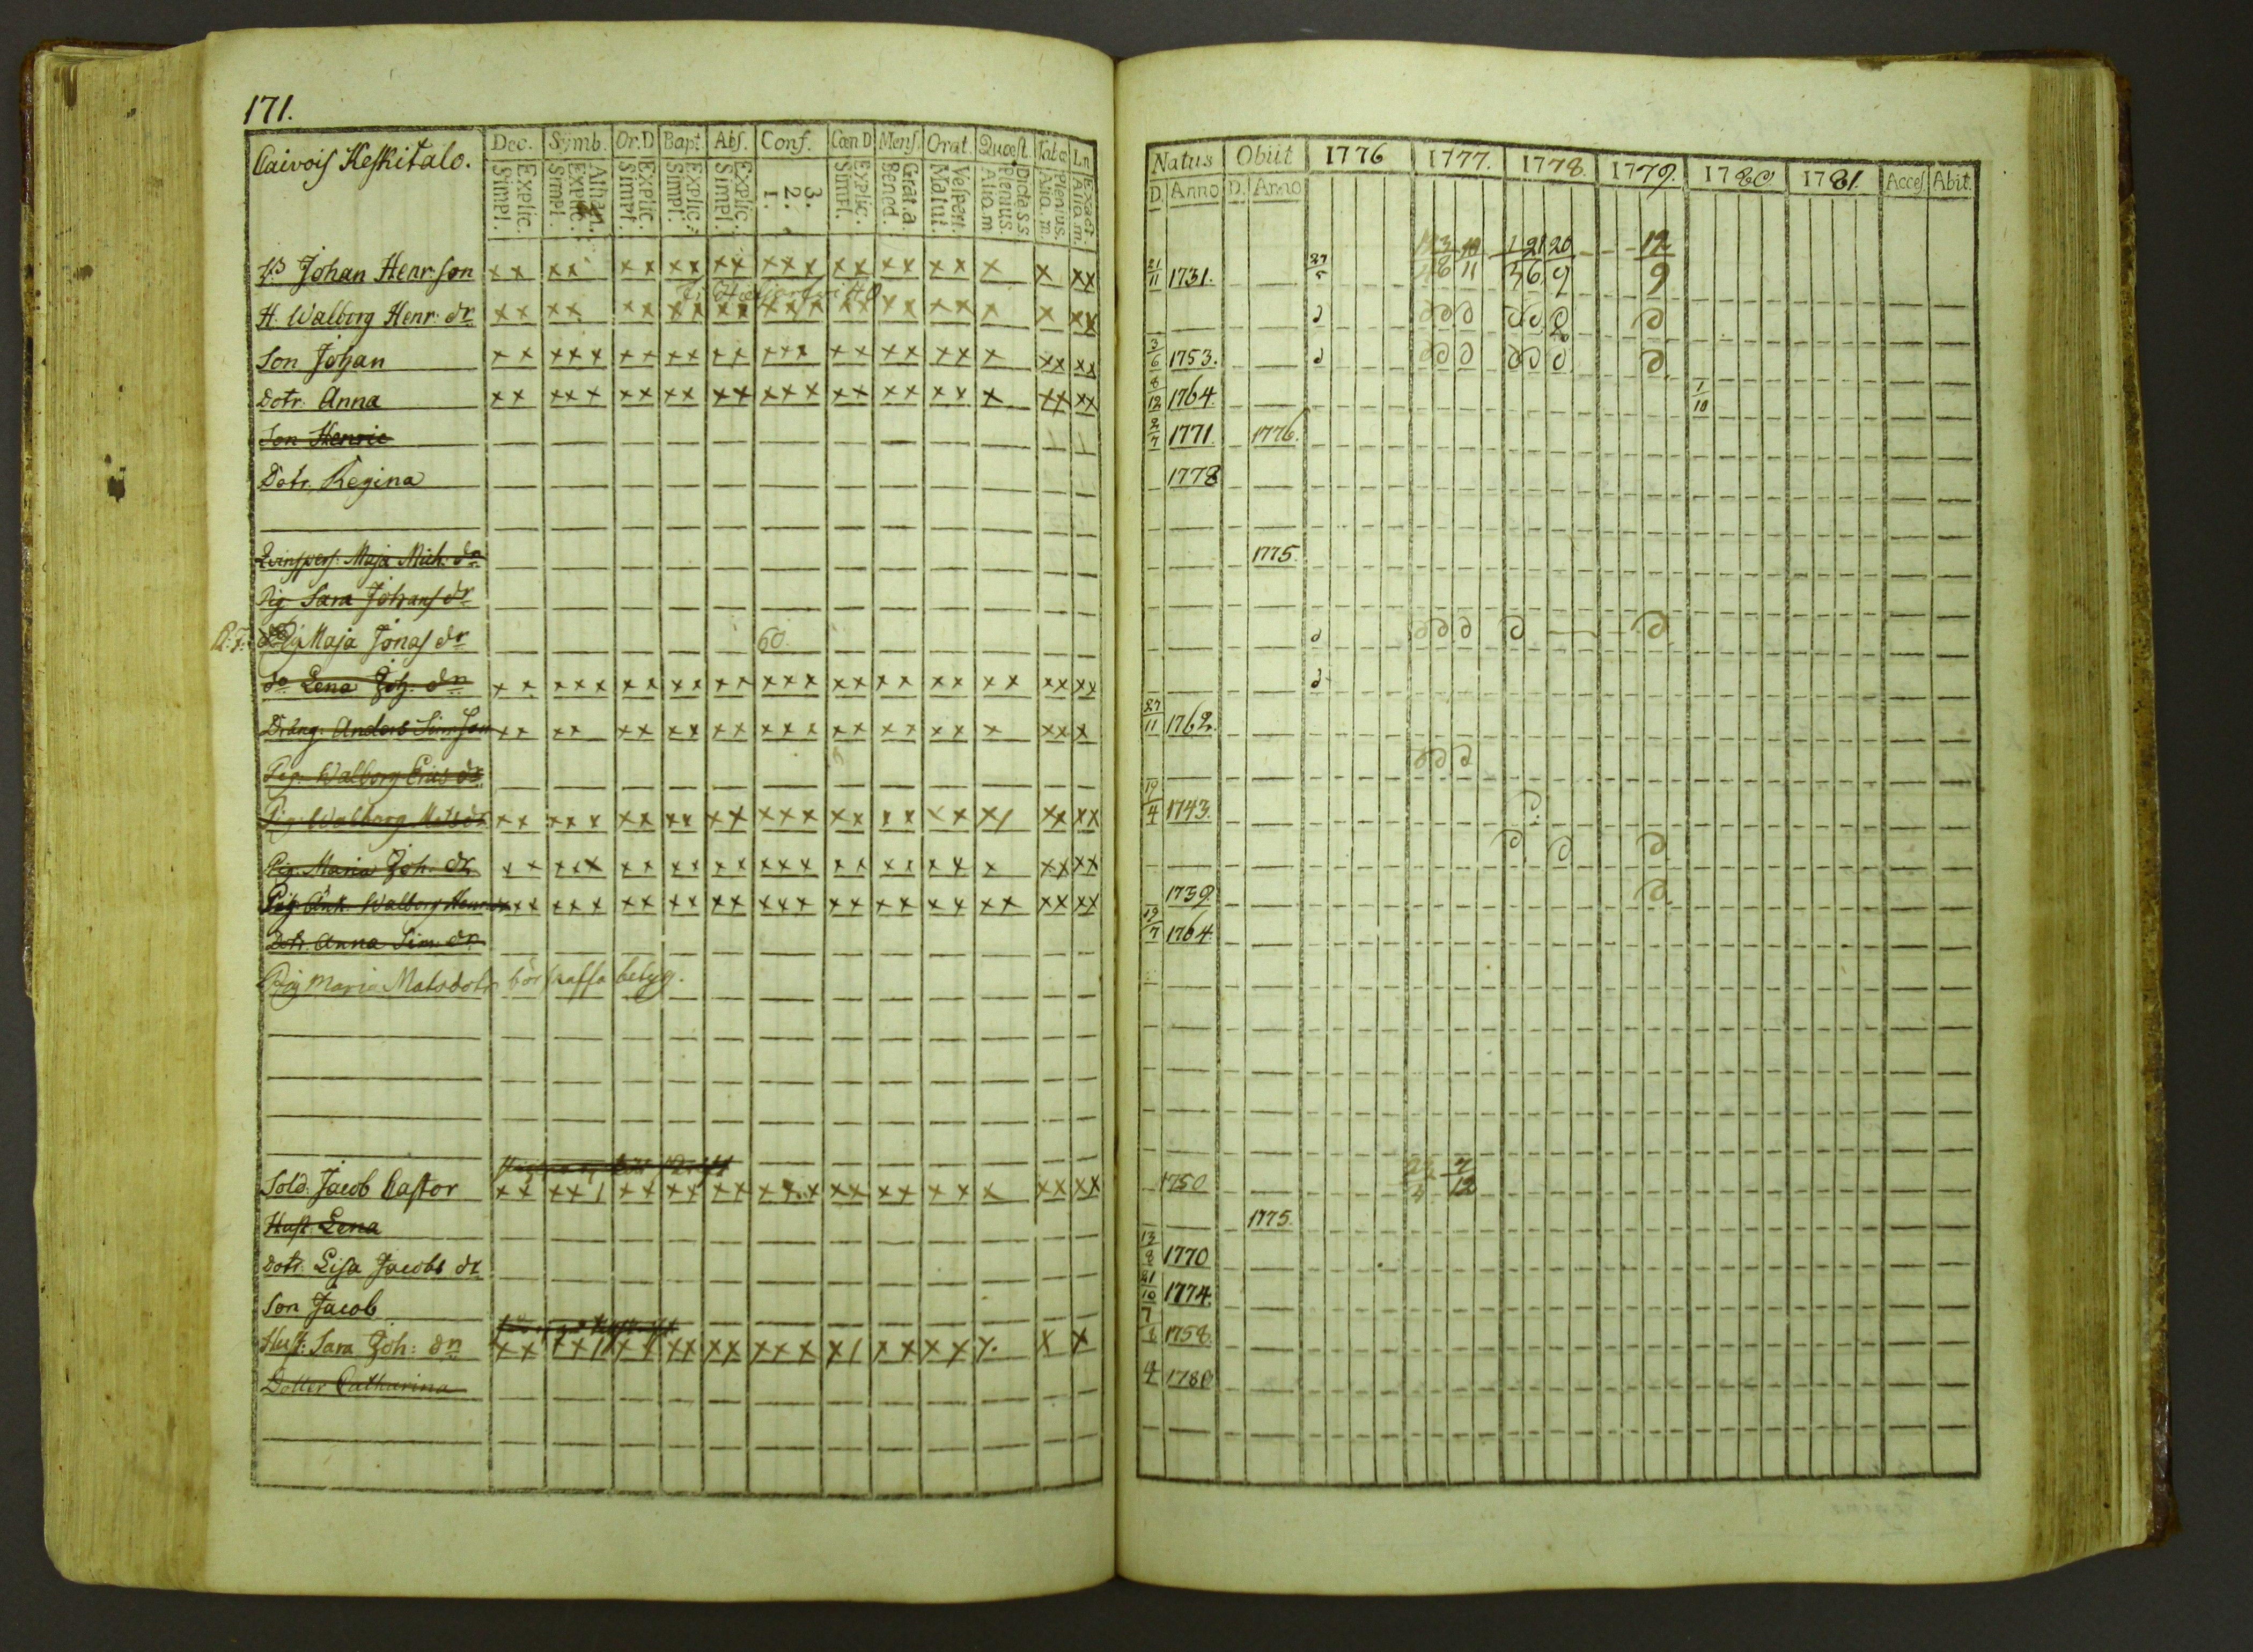 171.
Caivois Keskitalo.
Dec. Symb. Or.D Bapt. Abs. Conf. Cœn D Mens. Orat. Quæst. Tab.œ Ln
Explic. Simpl. Athan. Explic. Simpl. Explic. Simpl. Explic. Simpl. Explic. Simpl. 3. 2. 1. Explic. Simpl. Grat.a Bened. Vespert. Matut. Dicta S.S. Plenius. Alia.m Plenius. Alia.m. Exact. Alia.m.
Natus Obiit 1776 1777. 1778. 1779. 1780 1781. Acces. Abit.
D. Anno D. Anno
Johan Henr: son 21/11 1731. 27/5
H. Walborg Henr: dr
Son Johan 3/6 1753.
Dotr. Anna 8/12 1764. 1/10
Son Henric 2/7 1771. 1776.
Dotr. Regina 1778
Maja Mich: dr 1775.
Pig. Sara Johans dr
Pig Maja Jonas dr 60.
do Lena Joh: dr
Dräng: Anders Simson 27/11 1762.
Pig. Walborg Erics dr
Pig. Walborg Mats dr 19/4 1743.
Pig. Maria Joh. dr
Enk. Walborg Henr dr 1739.
Dotr. Anna Sim. dr 19/7 1764.
Pig Maria Matsdotr bör skaffa betyg.
Sold. Jacob Castor 1750
Hust. Lena 1775.
Dotr. Lisa Jacobs dr 13/8 1770
Son Jacob 21/10 1774.
Hust: Sara Joh: dr 1758.
Dotter Catharina 1780